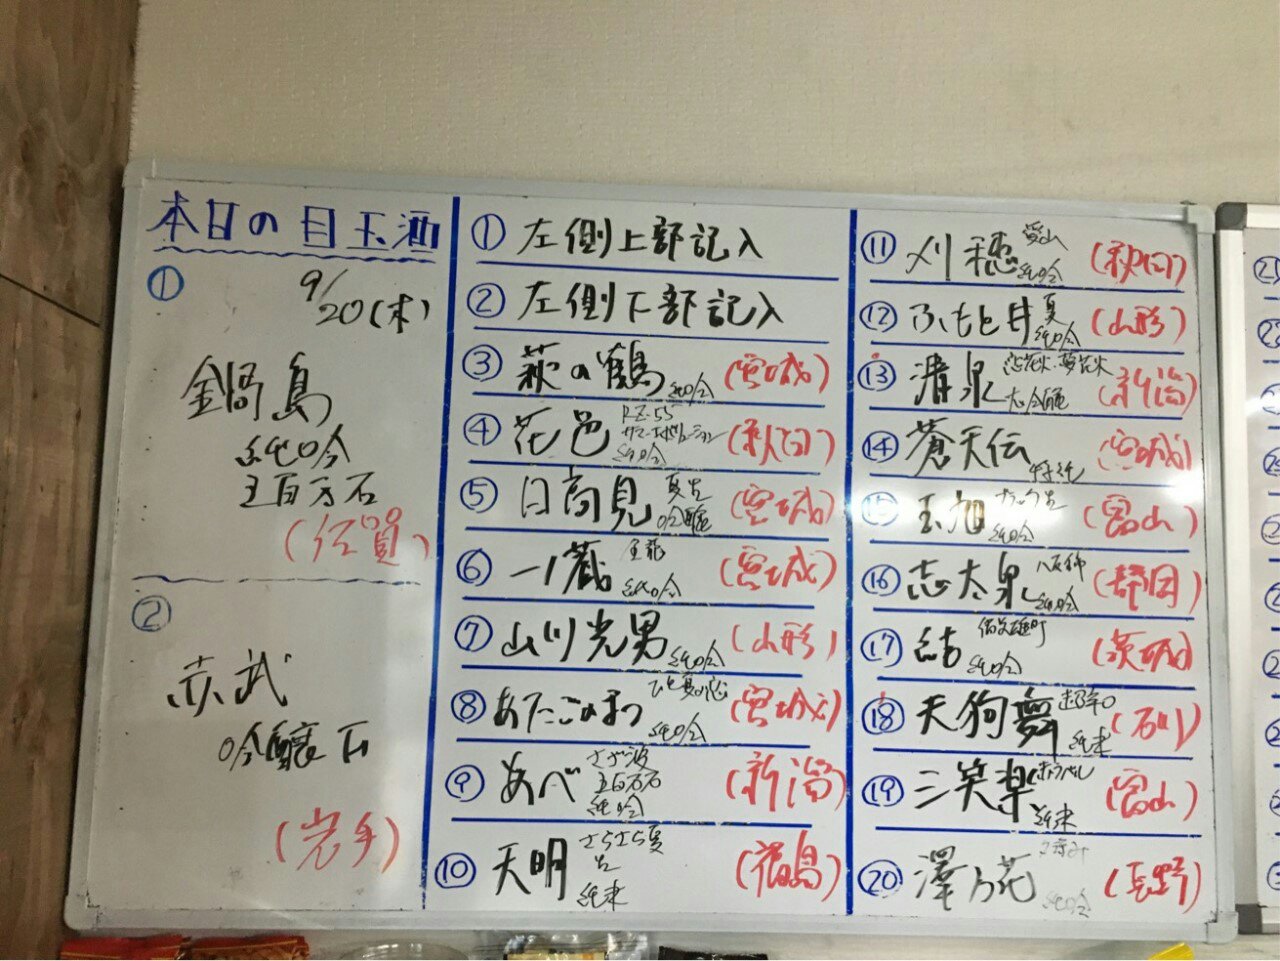 本日の目玉酒
① 9/20(木)
鍋島
純吟
五百万石
(佐賀)
②
赤武
吟醸
(岩手)
① 左側上部記入
② 左側下部記入
③ 萩の鶴 純吟 (宮城)
④ 花邑 純吟 (秋田)
⑤ 日高見 夏吉 吟醸 (宮城)
⑥ 一ノ蔵 純吟 (宮城)
⑦ 山川光男 純吟 (山形)
⑧ あたごのまつ ひと夏の恋 純吟 (宮城)
⑨ あべ 五百万石 純吟 (新潟)
⑩ 天明 さらさら夏 純米 (福島)
⑪ 刈穂 愛山 純吟 (秋田)
⑫ ふもと井 夏 純吟 (山形)
⑬ 清泉 大吟醸 (新潟)
⑭ 蒼天伝 特純 (宮城)
⑮ 玉旭 純吟 (富山)
⑯ 志太泉 八反錦 純吟 (静岡)
⑰ 結 備前雄町 純吟 (茨城)
⑱ 天狗舞 超辛口 純米 (石川)
⑲ 三笑楽 純米 (富山)
⑳ 澤乃花 純吟 (長野)